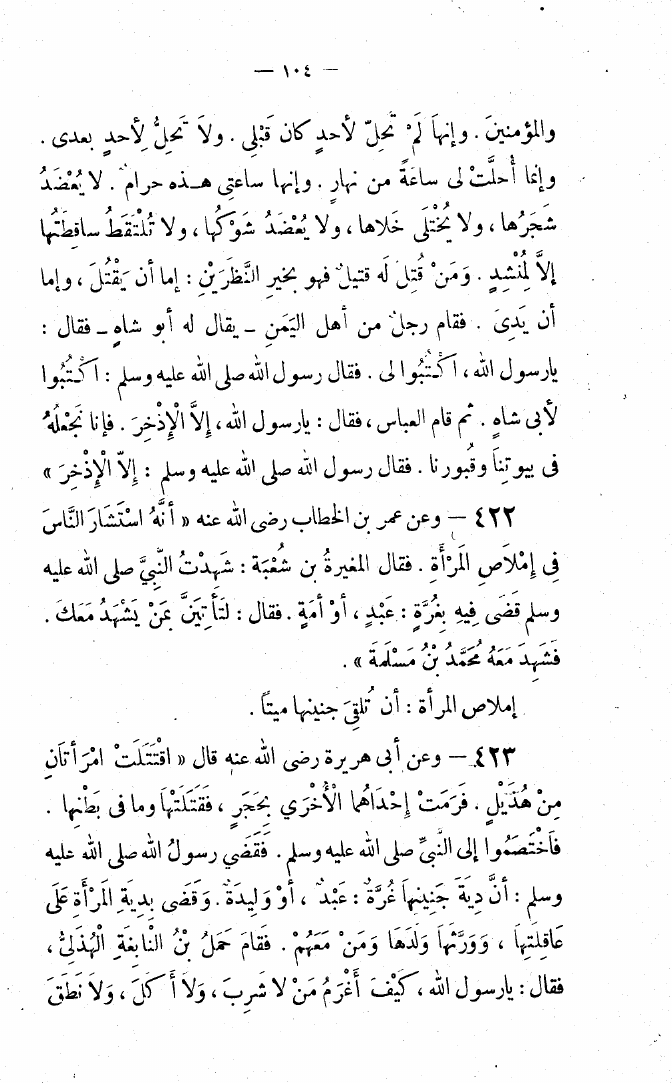 — ١٠٤ —
والمؤمنينَ . وإنهاَ لَمْ تَحِلّ لأحدٍ كان قَبْلِى . ولاَ تَحِلُّ لِأحدٍ بعدى .
وإنما أُحلَّتْ لى ساعَةً من نهارٍ . وإنها ساعتى هـذه حرامٌ . لا يُعْضَدُ
شَجَرُها ، ولا يُخْتَلَى خَلاها ، ولا يُعْضَدُ شَوْكُها ، ولا تُلْتَقَطُ ساقِطَتُها
إلاَّ لِمُنْشِدٍ . وَمَنْ قُتِلَ لَه قتيلٌ فهو بخيرِ النَّظَرَيْنِ : إما أن يَقْتُلَ ، وإما
أن يَدِىَ . فقام رجلٌ من أهل اليَمَنِ ــ يقال له أبو شاهٍ ــ فقال :
يارسول الله ، اكْتُبُوا لى . فقال رسول الله صلى الله عليه وسلم : اكْتُبُوا
لأبى شاهٍ . ثم قام العباس ، فقال : يارسول الله ، إِلاَّ الْإِذْخِرَ . فإنا نَجْعَلُهُ
فى بيوتِنَا وقُبورنا . فقال رسول الله صلى الله عليه وسلم : إِلاّ الْإِذْخِرَ »
٤٢٢ — وعن عمر بن الخطاب رضى الله عنه « أنَّهُ اسْتَشَارَ النَّاسَ
فِى إِمْلَاصِ المَرْأَةِ . فقال المغيرةُ بن شُعْبَة : شَهِدْتُ النَّبِيَّ صلى الله عليه
وسلم قَضَى فِيهِ بِغُرَّةٍ : عَبْدٍ ، أوْ أمَةٍ . فقال : لتَأتِيَنَّ بمَنْ يَشْهَدُ مَعَكَ .
فَشَهِدَ مَعَهُ مُحَمَّدُ بْنُ مَسْلَمَةَ » .
إملاص المرأة : أن تُلقِىَ جنينها ميتاً .
٤٢٣ — وعن أبى هريرة رضى الله عنه قال « اقْتَتَلَتْ امْرَأتَانِ
مِنْ هُذَيْلٍ . فَرَمَتْ إِحْدَاهُما الْأُخْرَي بِحَجَرٍ ، فَقَتَلَتْهَا وما فى بَطْنِها .
فَاخْتَصَمُوا إلى النَّبيِّ صلى الله عليه وسلم . فَقَضَي رسولُ الله صلى الله عليه
وسلم : أنَّ دِيَةَ جَنِينِهاَ غُرَّةٌ : عَبْدٌ ، أوْ وَلِيدَةٌ . وَقَضَى بِديَةِ المَرْأَةِ عَلَى
عَاقِلَتِهَا ، وَوَرَّثَهَا وَلَدَهَا وَمَنْ مَعَهُمْ . فَقَامَ حَمَلُ بْنُ النَّابِغَةِ الْهُذَلِىُّ ،
فقال : يارسول الله ، كَيْفَ أَغْرَمُ مَنْ لَا شَرِبَ ، وَلَا أَكَلَ ، وَلَا نَطَقَ